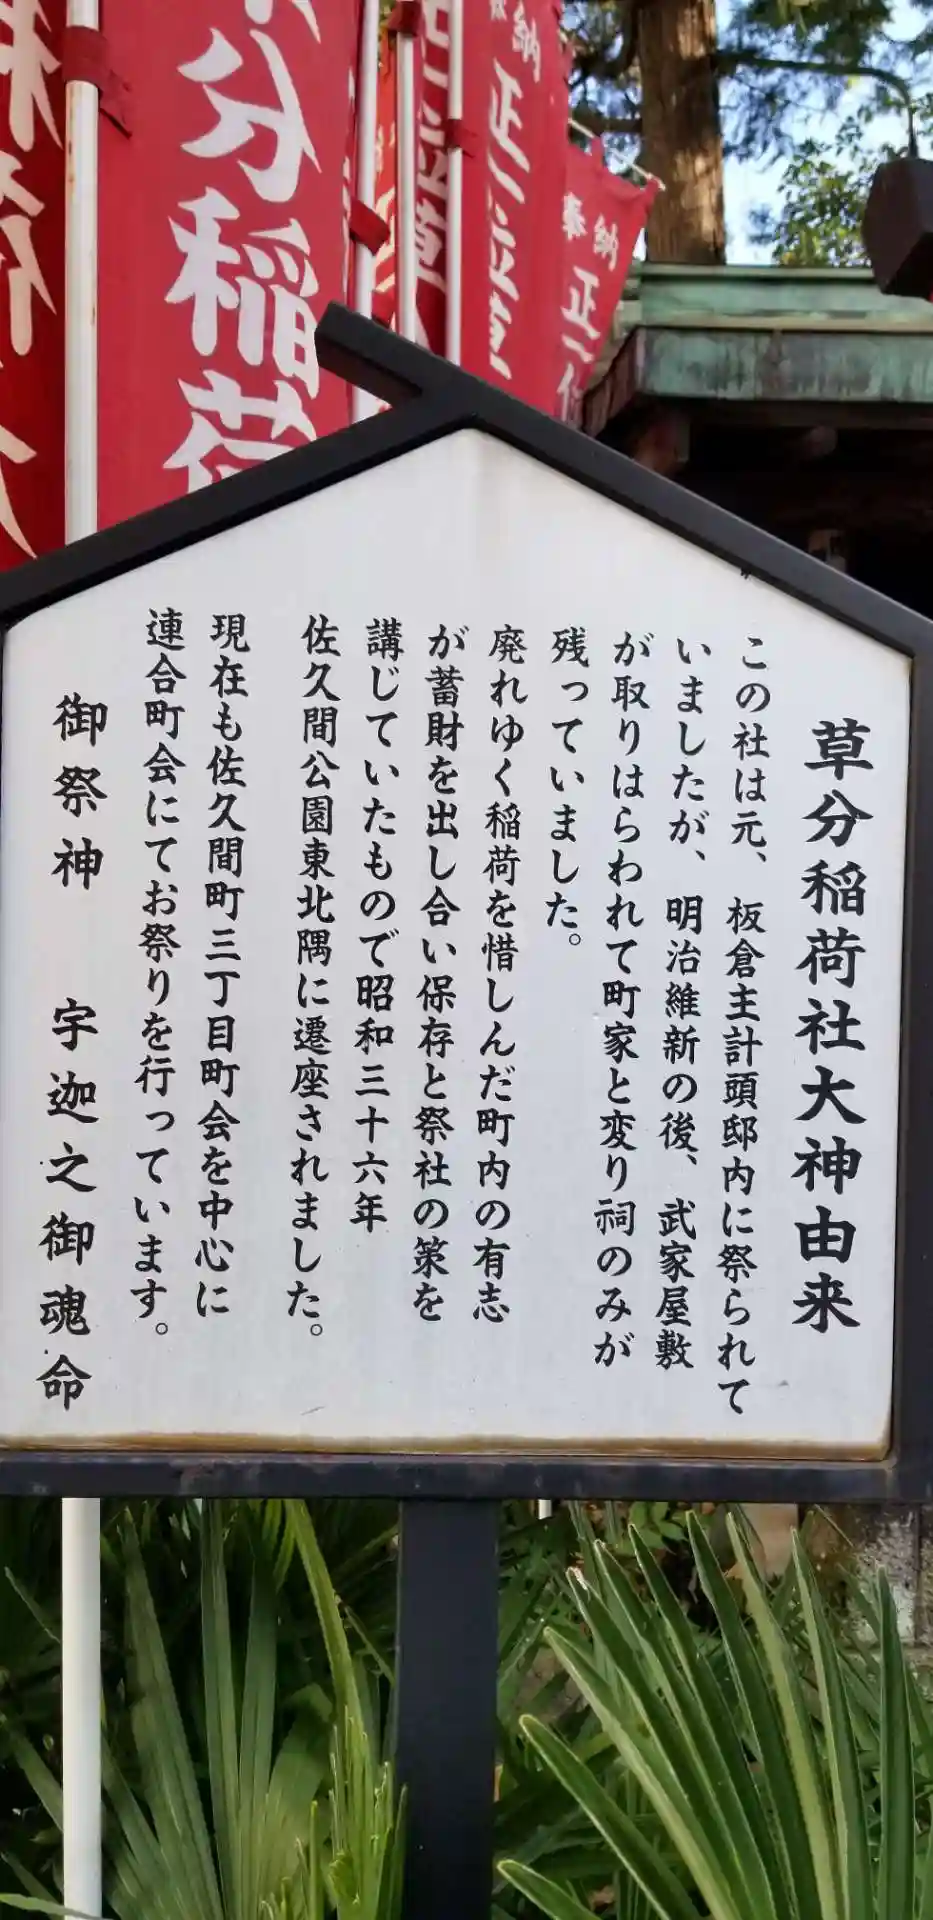 草分稲荷社大神由来
この社は元、板倉主計頭邸内に祭られて
いましたが、明治維新の後、武家屋敷
が取りはらわれて町家と変り祠のみが
残っていました。
廃れゆく稲荷を惜しんだ町内の有志
が蓄財を出し合い保存と祭社の策を
講じていたもので昭和三十六年
佐久間公園東北隅に遷座されました。
現在も佐久間町三丁目町会を中心に
連合町会にてお祭りを行っています。
御祭神 宇迦之御魂命
奉納
正一位
納
正一位草
正一位草
分稲荷